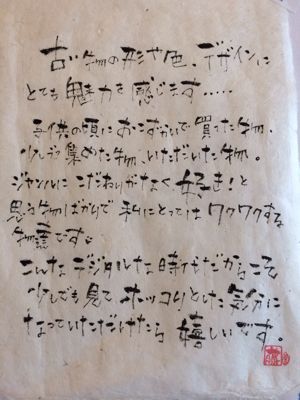 古い物の形や色、デザインに
とても魅力を感じます.....
子供の頃におこずかいで買った物、
少しずつ集めた物、いただいた物。
ジャンルにこだわりがなく好き!と
思う物ばかりで私にとってはワクワクする
物達です。
こんなデジタルな時代だからこそ
少しでも見てホッコリとした気分に
なっていただけたら嬉しいです。